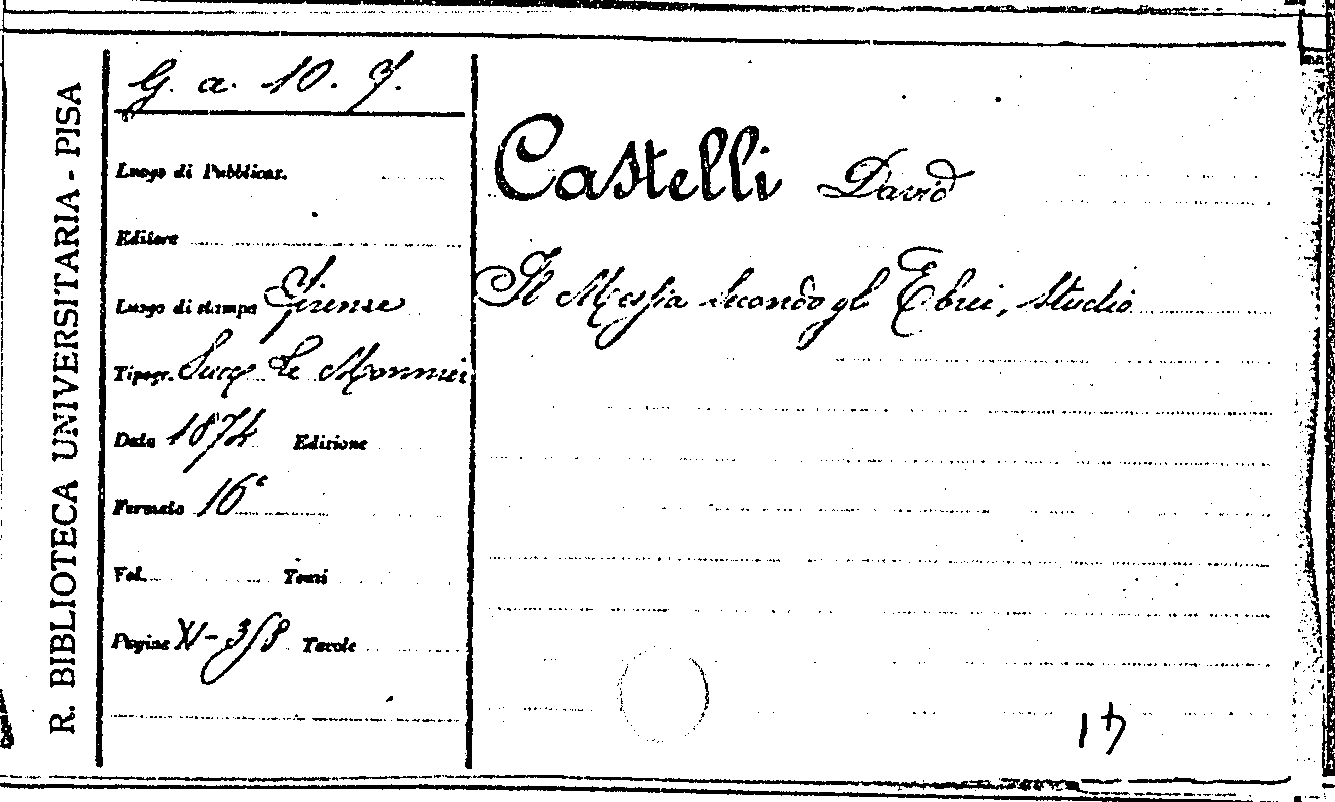 R. BIBLIOTECA UNIVERSITARIA - PISA
G. a. 10. 7.
Luogo di Pubblicaz.
Editore
Luogo di stampa Firenze
Tipogr. Succ. Le Monnier
Data 1874 Edizione
Formato 16°
Vol. Tomi
Pagine XI-358 Tavole
Castelli David
Il Messia secondo gli Ebrei, studio